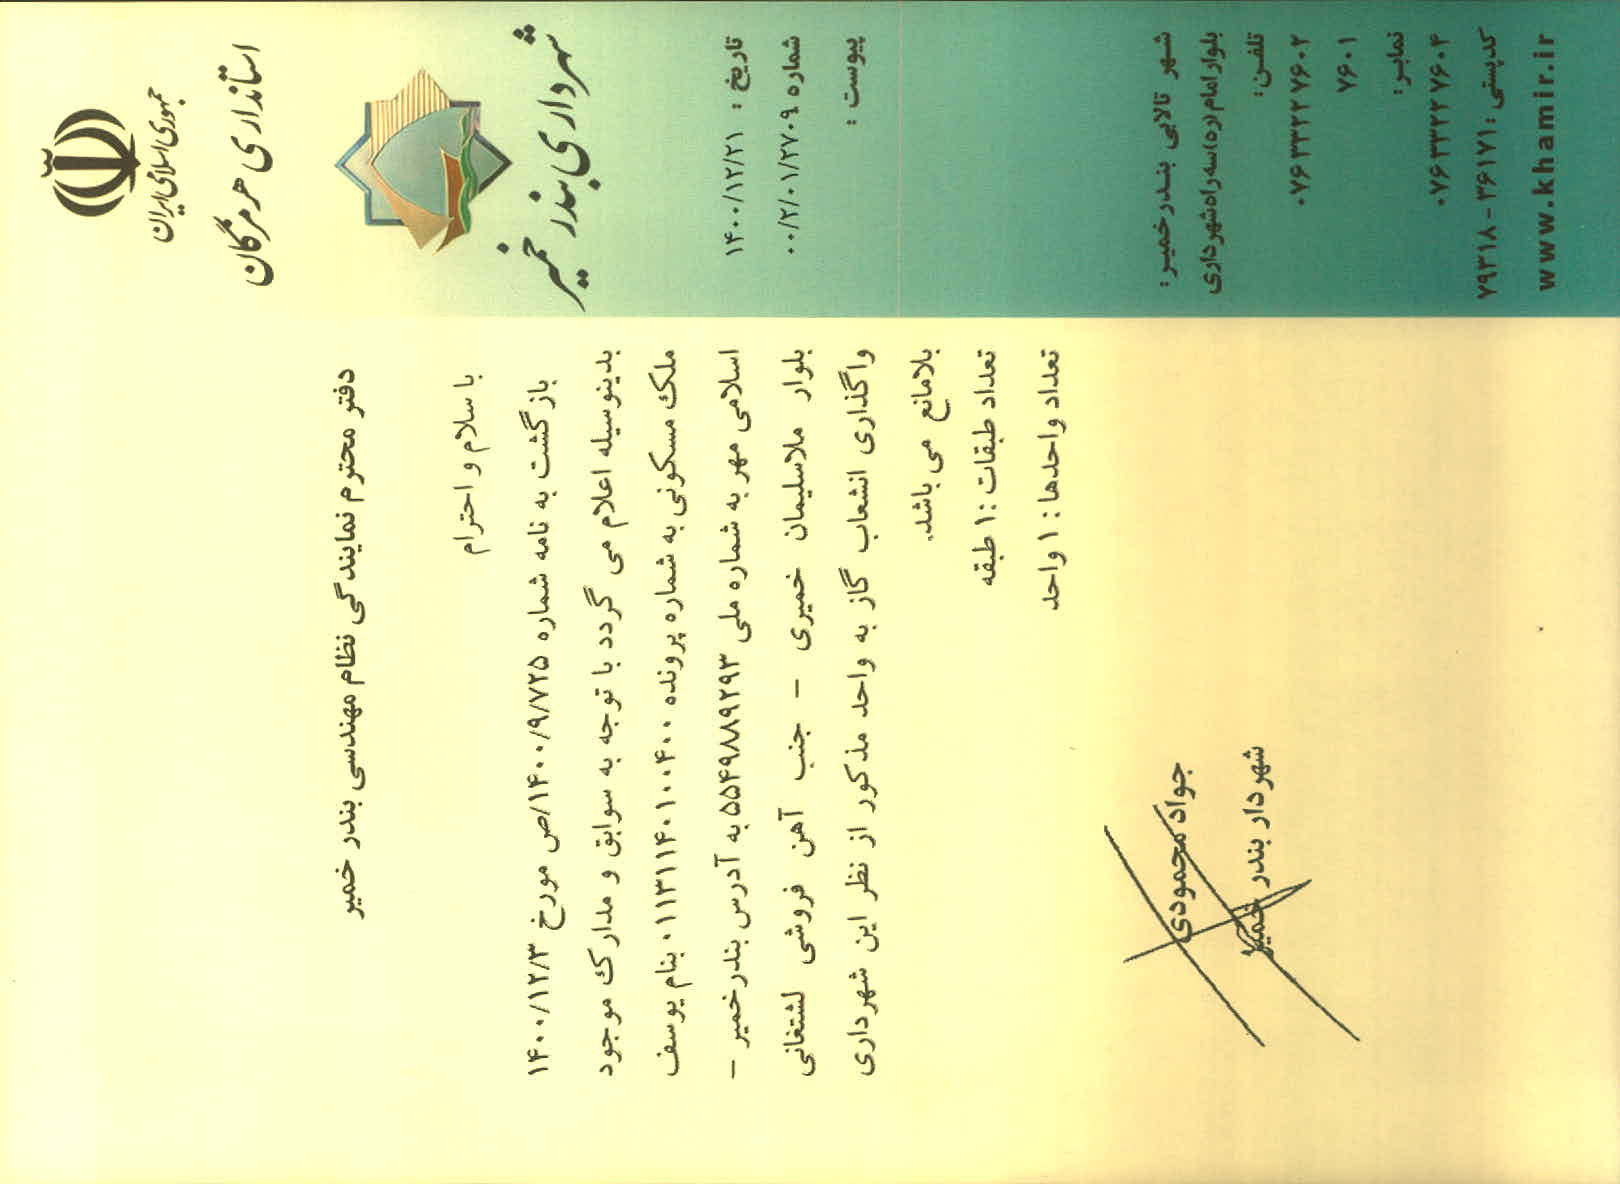 جمهوری اسلامی ایران
استانداری هرمزگان
شهرداری بندر خمیر
تاریخ : ۱۴۰۰/۱۲/۲۱
شماره ۰۰/۲/۰۱/۲۷۰۹
پیوست :
شهر تالابی بندرخمیر:
بلوار امام(ره)سه راه شهرداری
تلفن:
۰۷۶۳۳۲۲۷۶۰۲
۷۶۰۱
نمابر:
۰۷۶۳۳۲۲۷۶۰۴
کدپستی: ۳۶۱۷۱ - ۷۹۳۱۸
www.khamir.ir
دفتر محترم نمایندگی نظام مهندسی بندر خمیر
با سلام و احترام
بازگشت به نامه شماره ۱۴۰۰/۹/۷۲۵/ص مورخ ۱۴۰۰/۱۲/۳
بدینوسیله اعلام می گردد با توجه به سوابق و مدارک موجود
ملک مسکونی به شماره پرونده ۰۱۱۳۱۱۴۰۱۰۰۴۰۰ بنام یوسف
اسلامی مهر به شماره ملی ۵۵۴۹۸۸۹۲۹۳ به آدرس بندرخمیر –
بلوار ملاسلیمان خمیری – جنب آهن فروشی لشتغانی
واگذاری انشعاب گاز به واحد مذکور از نظر این شهرداری
بلامانع می باشد.
تعداد طبقات :۱ طبقه
تعداد واحدها : ۱ واحد
جواد محمودی
شهردار بندر خمیر